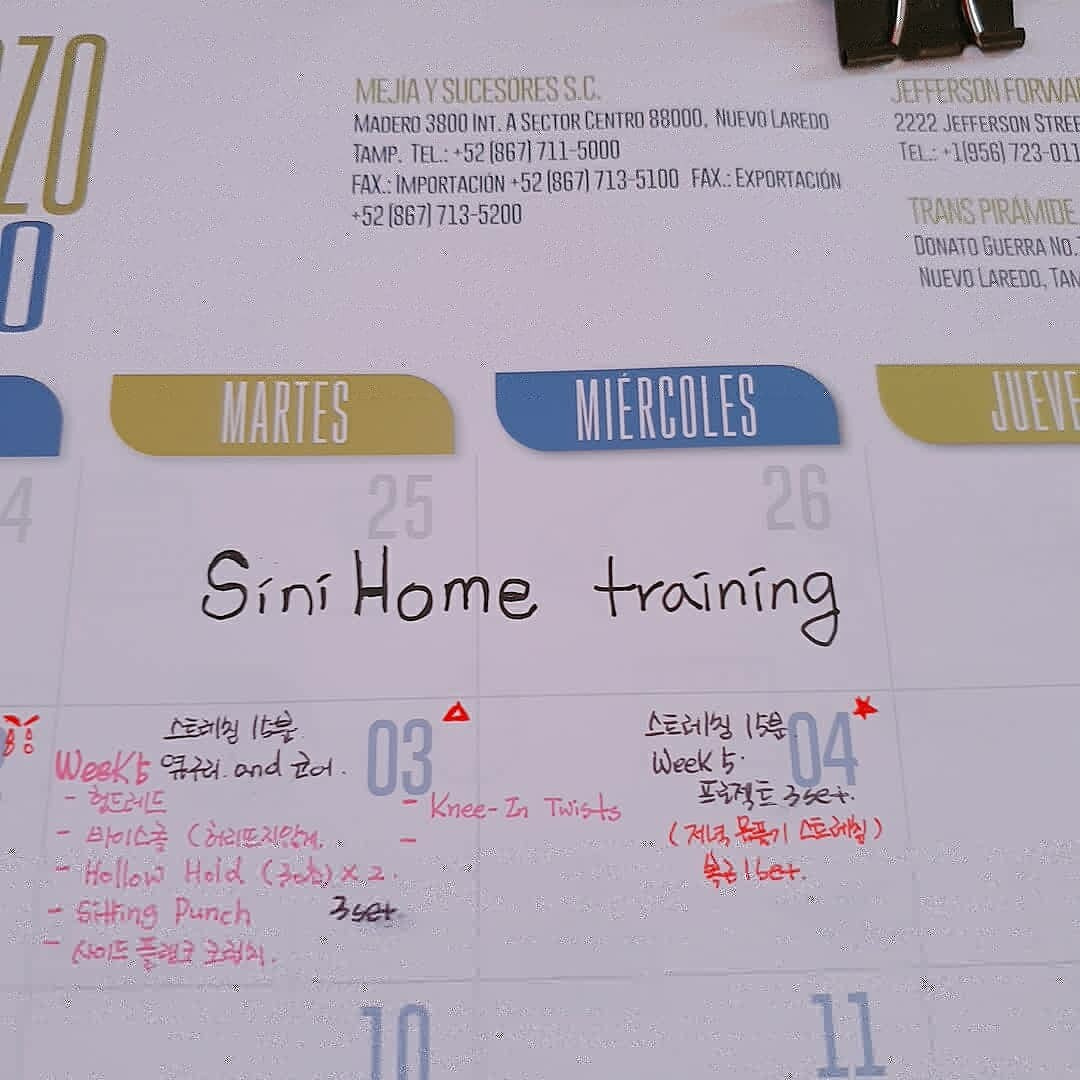 ZO
0
MEJÍA Y SUCESORES S.C.
MADERO 3800 INT. A SECTOR CENTRO 88000, NUEVO LAREDO
TAMP. TEL.: +52 (867) 711-5000
FAX.: IMPORTACIÓN +52 (867) 713-5100 FAX.: EXPORTACIÓN
+52 (867) 713-5200
JEFFERSON FORWA
2222 JEFFERSON STREE
TEL.: +1(956) 723-011
TRANS PIRÁMIDE
DONATO GUERRA NO.
NUEVO LAREDO, TAM
MARTES
MIÉRCOLES
JUEVE
4
25
26
Sini Home training
03
스트레칭 15분
Week 5 옆구리 and 코어.
- 힙트레드
- 바이스쿨 (허리뜨지않게.
- Hollow Hold (30초) x 2.
- Sitting Punch 3set
- 사이드 플랭크 크런치.
- Knee-In Twists
-
04
스트레칭 15분
Week 5.
프로젝트 3set.
(저녁 몸풀기 스트레칭)
복근 1set.
10
11